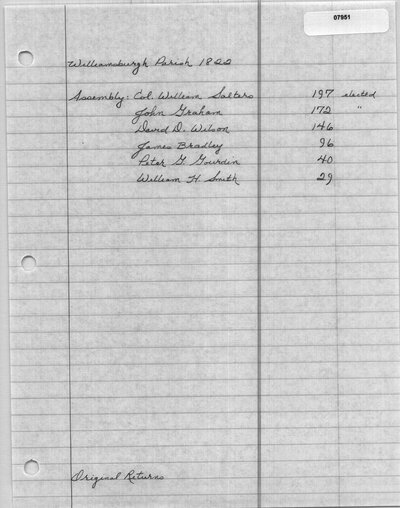 07951
Williamsburgh Parish 1822
Assembly: Col. William Salters 197 elected
John Graham 172 "
David D. Wilson 146
James Bradley 96
Peter G. Gourdin 40
William H. Smith 29
Original Returns